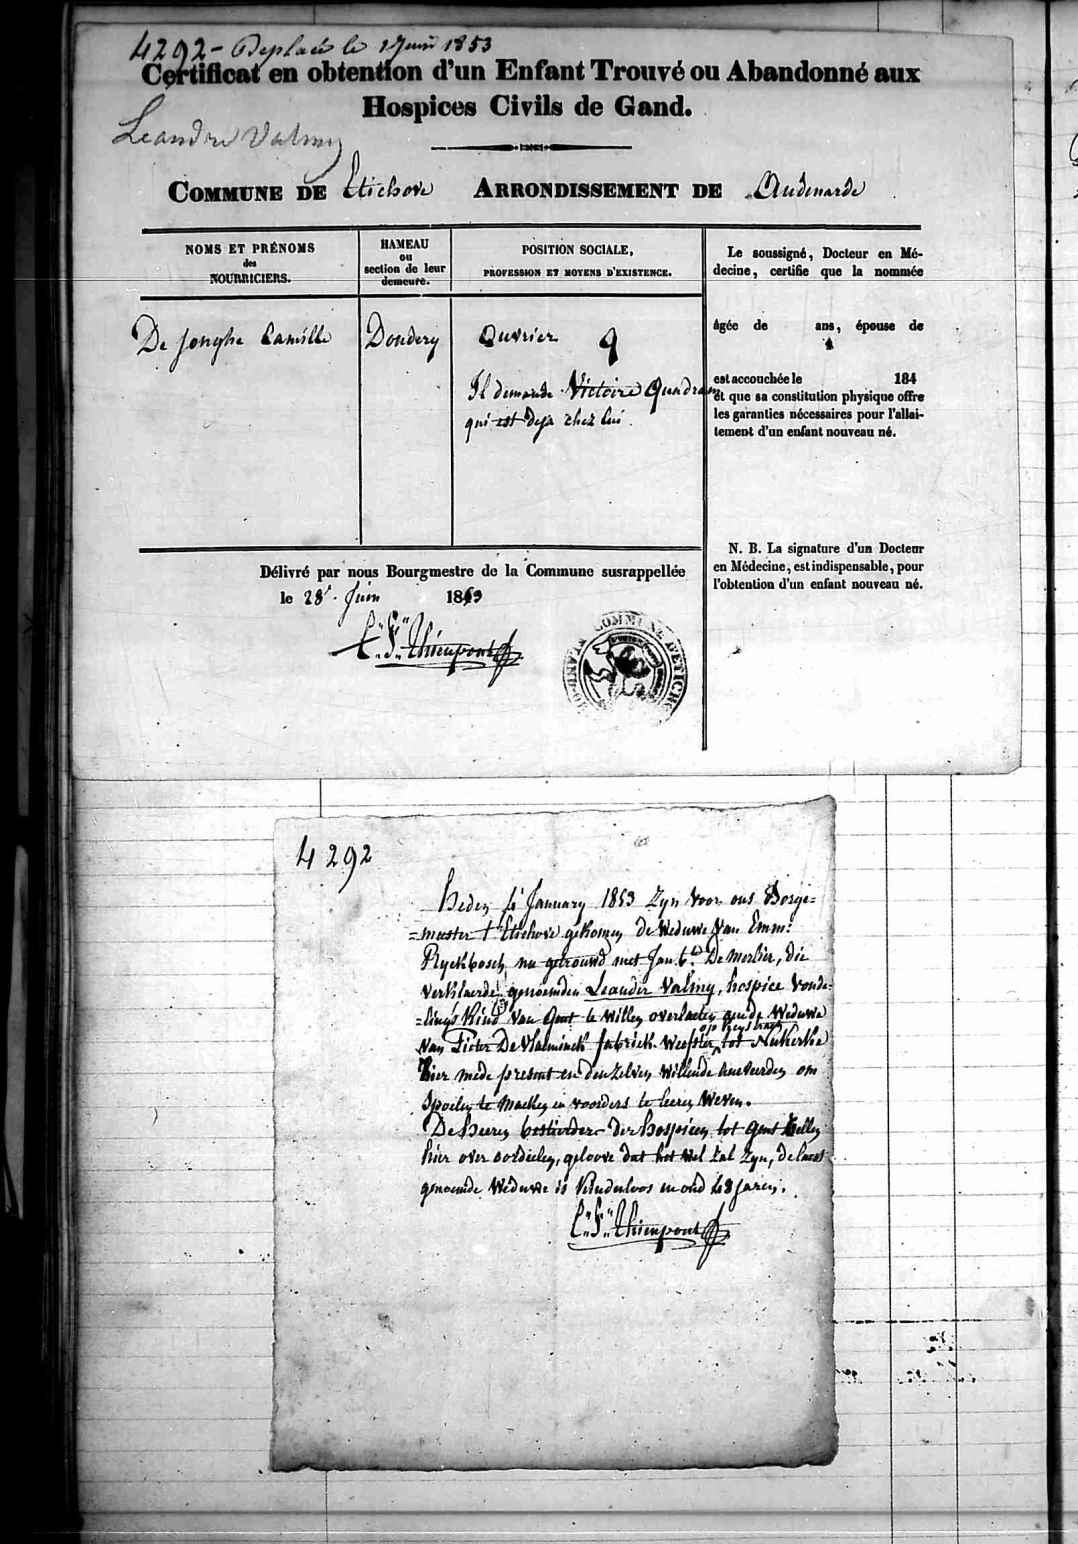 4292 - Deplacé le 1 Juin 1853
Certificat en obtention d'un Enfant Trouvé ou Abandonné aux
Hospices Civils de Gand.
Leandre Valmy
COMMUNE DE Etichove ARRONDISSEMENT DE Audenarde
NOMS ET PRÉNOMS
des
NOURRICIERS.
HAMEAU
ou
section de leur
demeure.
POSITION SOCIALE,
PROFESSION ET MOYENS D'EXISTENCE.
De Jonghe Camille
Donderÿ
Ouvrier 9
Il demande Victoire Quadram
qui est deja chez lui.
Le soussigné, Docteur en Mé-
decine, certifie que la nommée
âgée de ans, épouse de
est accouchée le 184
et que sa constitution physique offre
les garanties nécessaires pour l'allai-
tement d'un enfant nouveau né.
N. B. La signature d'un Docteur
en Médecine, est indispensable, pour
l'obtention d'un enfant nouveau né.
Délivré par nous Bourgmestre de la Commune susrappellée
le 28 Juin 1853
C. F. Thienpont
COMMUNE D'ETICHOVE
4292
Heden January 1853 Zyn voor ons Borge=
=meester t'Etichove gekomen de Weduwe van Emm:
Ryckbosch nu getrouwd met Jan Bte De Merlier, die
verklaerde genoemden Leander Valmy, hospice vonde=
=lings Kind van Gent te willen overlaeten aen de Weduwe
op
van Pieter De Vlaeminck fabriek Weefster, tot Nukerke
hier mede present en denzelven willende aenveerden om
Spoelen te maeken en voorders te leeren Weven.
De heeren bestierders der hospicen tot Gent zullen
hier over oordeelen, geloove dat het wel zal zyn, de laest
genoemde Weduwe is Kinderloos en oud 48 Jaren.
C. F. Thienpont